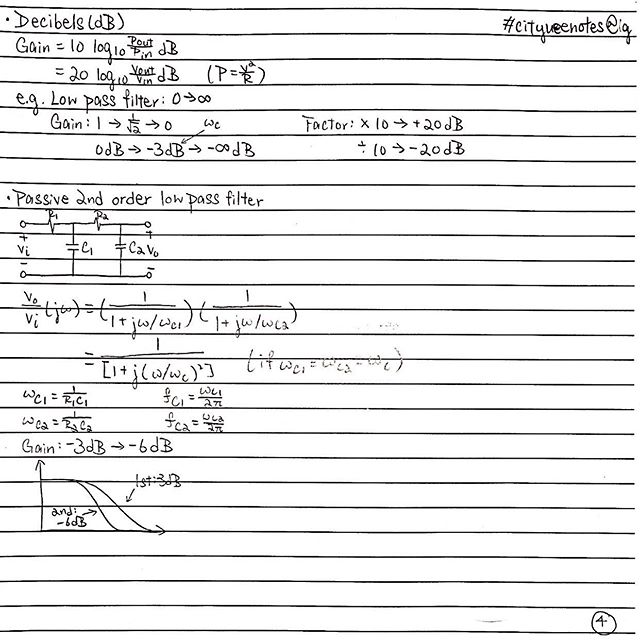 • Decibels (dB)
#cityueenotes@ig
Gain = 10 log₁₀ Pout/Pin dB
= 20 log₁₀ Vout/Vin dB (P = V²/R)
e.g. Low pass filter: 0 → ∞
Gain: 1 → 1/√2 → 0
ωc
Factor: × 10 → +20dB
0dB → -3dB → -∞dB
÷ 10 → -20dB
• Passive 2nd order low pass filter
R₁ R₂
+ Vi - C₁ C₂ + Vo -
Vo/Vi (jω) = (1/(1 + jω/ωc1)) (1/(1 + jω/ωc2))
= 1/[1 + j(ω/ωc)²] (if ωc1 = ωc2 = ωc)
ωc1 = 1/R₁C₁ fc1 = ωc1/2π
ωc2 = 1/R₂C₂ fc2 = ωc2/2π
Gain: -3dB → -6dB
1st: 3dB
2nd:
-6dB
4